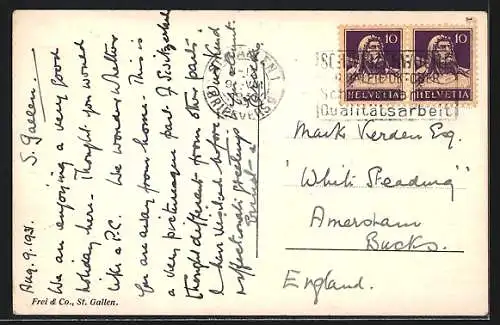 S. Gallen.
Aug. 9. 1931.
We are enjoying a very good
holiday here - Thought you would
like a P.C. We wonder whether
you are away from home - This is
a very picturesque part of Switzerland
though different from other parts
I have visited before
affectionate greetings
Frei & Co., St. Gallen.
10 10
HELVETIA HELVETIA
Qualitätsarbeit
Mark Verden Esq.
"White Steading"
Amersham
Bucks.
England.